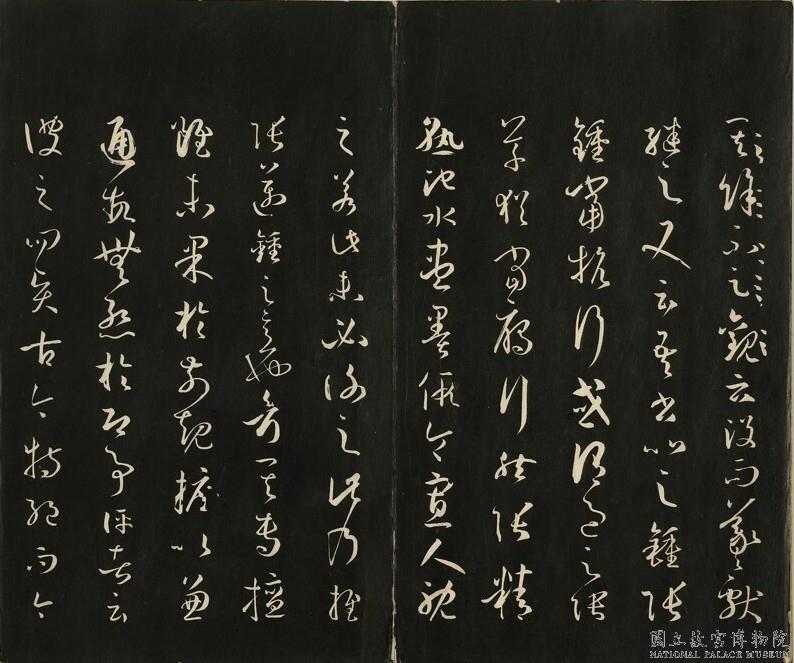 其餘不足觀云沒而羲獻
繼之又云吾書比之鍾張
鍾當抗行或謂過之張
草猶當雁行然張精
熟池水盡墨假令寡人耽
之若此未必謝之此乃推
張邁鍾之意也考其專擅
雖未果於前規摭以兼
通故無慚於即事評者云
彼之四賢古今特絕而今
國立故宮博物院
NATIONAL PALACE MUSEUM